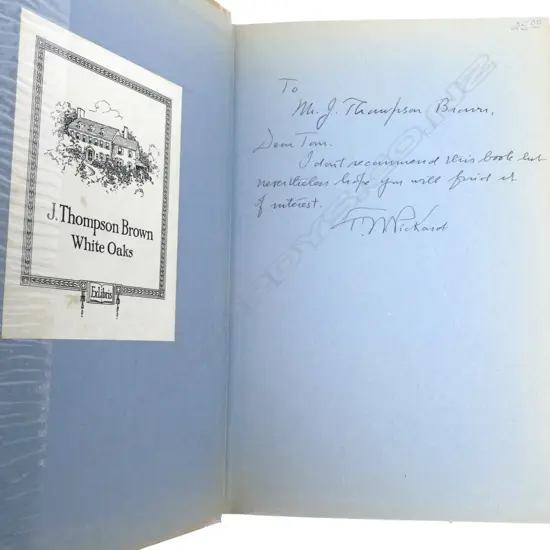 J. Thompson Brown
White Oaks
ExLibris
25.00
To
Mr. J. Thompson Brown,
Dear Tom.
I don't recommend this book but
nevertheless hope you will find it
of interest.